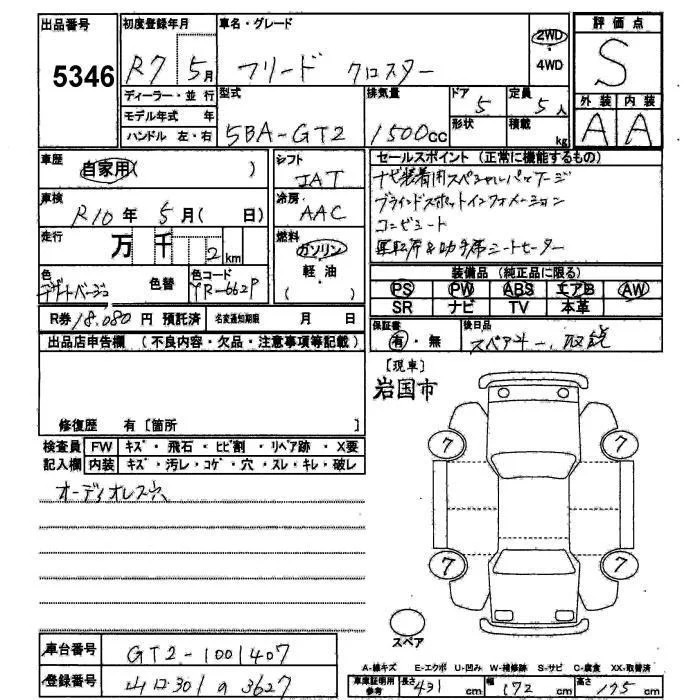 出品番号
5346
初度登録年月
R7 5月
車名・グレード
フリード クロスター
2WD
4WD
評価点
S
外装 内装
A A
ディーラー・並行
モデル年式 年
ハンドル 左・右
型式
5BA-GT2
排気量
1500cc
ドア
5
形状
定員
5人
積載
kg
車歴
自家用( )
シフト
IAT
セールスポイント (正常に機能するもの)
ナビ装着用スペシャルパッケージ
ブラインドスポットインフォメーション
コンビシート
運転席&助手席シートヒーター
車検
R10年 5月( 日)
冷房
AAC
走行
万 千 2km
燃料
ガソリン
軽・油
( )
色
デザートベージュ
色替
色コード
YR-662P
装備品 (純正品に限る)
PS PW ABS エアB AW
SR ナビ TV 本革
R券 18.080 円 預託済
名変通知期限 月 日
保証書
有・無
後日品
スペアキー、取説
出品店申告欄 (不良内容・欠品・注意事項等記載)
修復歴 有 [箇所 ]
[現車]
岩国市
検査員
記入欄
FW キズ・飛石・ヒビ割・リペア跡・X要
内装 キズ・汚レ・コゲ・穴・スレ・キレ・破レ
オーディオレス穴
7 7
7 7
スペア
A-線キズ E-エクボ U-凹み W-補修跡 S-サビ C-腐食 XX-取替済
車台番号
GT2-1001407
登録番号
山口301 の 3627
車庫証明用
参考
長さ 431 cm 幅 172 cm 高さ 175 cm